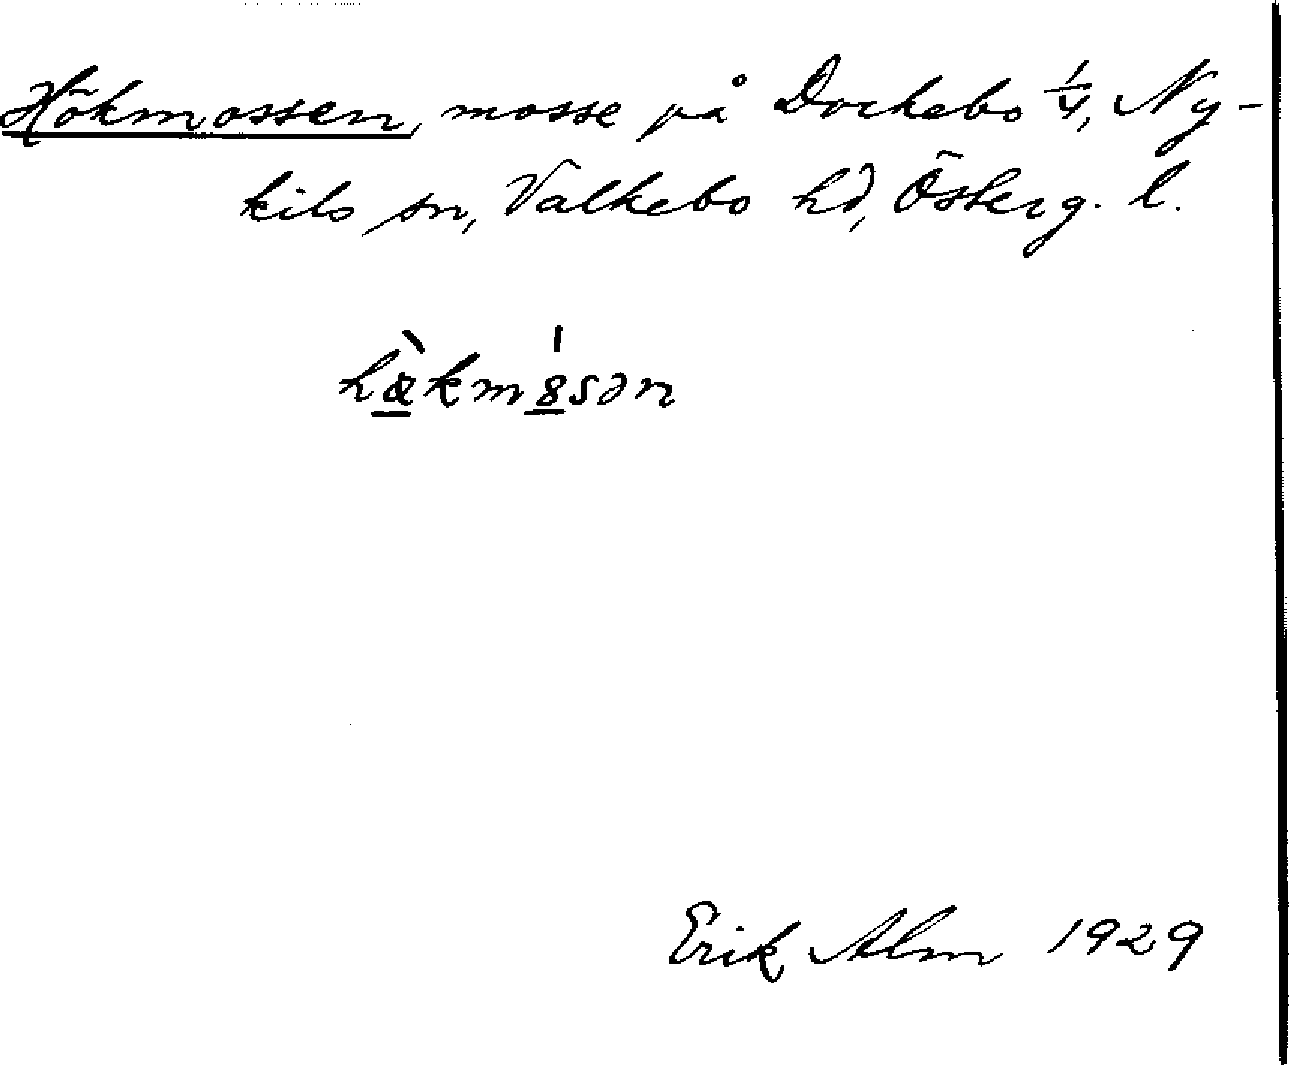 Hökmossen, mosse på Dockebo 1/4, Ny-
kils sn, Valkebo hd, Österg. l.
Erik Alm 1929